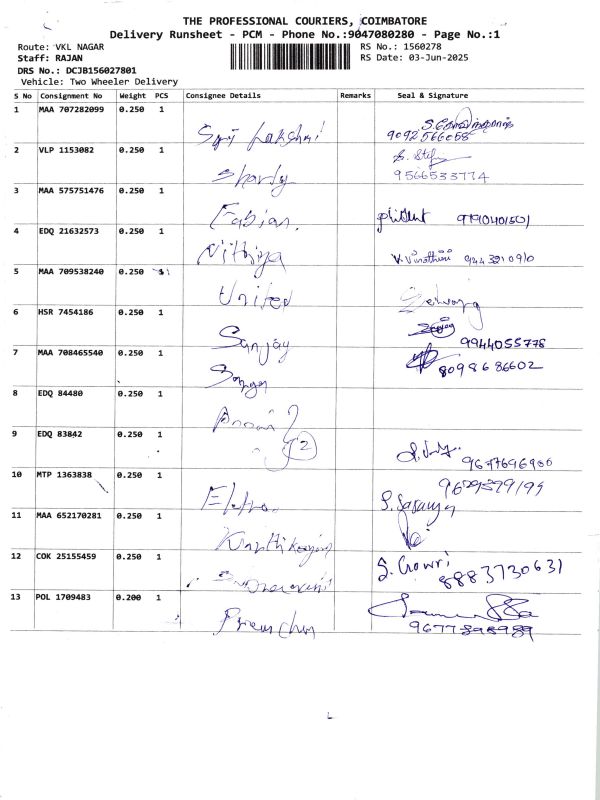 THE PROFESSIONAL COURIERS, COIMBATORE
Delivery Runsheet - PCM - Phone No.:9047080280 - Page No.:1
Route: VKL NAGAR
RS No.: 1560278
Staff: RAJAN
RS Date: 03-Jun-2025
DRS No.: DCJB156027801
Vehicle: Two Wheeler Delivery
S No Consignment No Weight PCS Consignee Details Remarks Seal & Signature
1 MAA 707282099 0.250 1 Sri Lakshmi 9092566058
2 VLP 1153082 0.250 1 Sharly 9566533774
3 MAA 575751476 0.250 1 Fabian. 9790401501
4 EDQ 21632573 0.250 1 Nithiya 9443210910
5 MAA 709538240 0.250 1 United Selvaraj
6 HSR 7454186 0.250 1 Sanjay 9944055778
7 MAA 708465540 0.250 1 8098686602
8 EDQ 84480 0.250 1
9 EDQ 83842 0.250 1 2 9677696900
10 MTP 1363838 0.250 1 Electro. 9629379199 S. Saranya
11 MAA 652170281 0.250 1 Karthikeyan
12 COK 25155459 0.250 1 S. Gowri 8883730631
13 POL 1709483 0.200 1 Premchan 9677898989